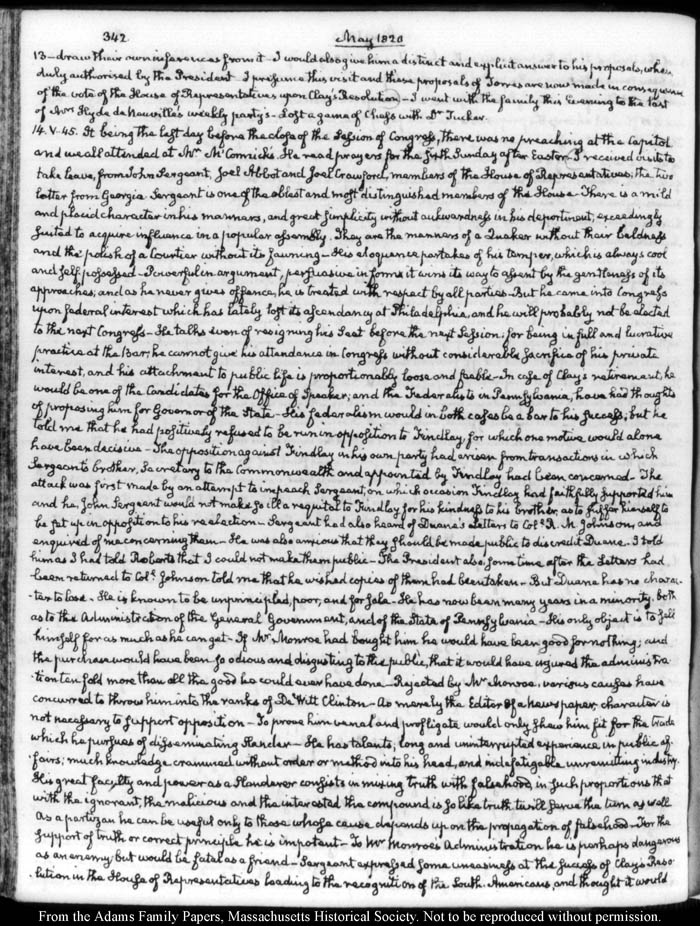 342 May 1820
13 — draw their own inferences from it — I would also give him a distinct and explicit answer to his proposals, when
duly authorised by the President I presume this visit and these proposals of Torres are now made in consequence
of the vote of the House of Representatives upon Clay's Resolution — I went with the family this Evening to the last
of Mrs Hyde de Neuville's weekly party's — Lost a game of Chess with Dr Tucker.
14. V. 45. It being the last day before the close of the Session of Congress, there was no preaching at the Capitol
and we all attended at Mr McCormick's. He read prayers for the fifth Sunday after Easter — I received visits to
take leave, from John Sergeant, Joel Abbot and Joel Crawford, members of the House of Representatives; the two
latter from Georgia. Sergeant is one of the ablest and most distinguished members of the House — There is a mild
and placid character in his manners, and great simplicity without aukwardness in his deportment; exceedingly
suited to acquire influence in a popular assembly. They are the manners of a Quaker without their baldness
and the polish of a Courtier without its fawning — His eloquence partakes of his temper, which is always cool
and self possessed — Powerful in argument, persuasive in forms it wins its way to assent by the gentleness of its
approaches; and as he never gives offence, he is treated with respect by all parties — But he came into Congress
upon federal interest which has lately lost its ascendancy at Philadelphia, and he will probably not be elected
to the next Congress — He talks even of resigning his Seat before the next Session; for being in full and lucrative
practice at the Bar, he cannot give his attendance in Congress without considerable sacrifice of his private
interest, and his attachment to public life is proportionably loose and feeble — In case of Clay's retirement, he
would be one of the Candidates for the Office of Speaker; and the Federalists in Pennsylvania, have had thoughts
of proposing him for Governor of the State — His federalism would in both cases be a bar to his success; but he
told me that he had positively refused to be run in opposition to Findlay, for which one motive would alone
have been decisive — The opposition against Findlay in his own party had arisen from transactions in which
Sergeant's brother, Secretary to the Commonwealth and appointed by Findlay had been concerned — The
attack was first made by an attempt to impeach Sergeant, on which occasion Findlay had faithfully supported him
and he, John Sergeant would not make so ill a requital to Findlay for his kindness to his brother, as to suffer himself to
be set up in opposition to his reelection — Sergeant had also heard of Duane's Letters to Coll. R. M. Johnson, and
enquired of me concerning them — He was also anxious that they should be made public to discredit Duane. I told
him as I had told Roberts that I could not make them public — The President also, some time after the Letters had
been returned to Coll. Johnson told me that he wished copies of them had been taken — But Duane has no charac-
ter to lose — He is known to be unprincipled, poor, and for sale — He has now been many years in a minority both
as to the Administration of the General Government, and of the State of Pennsylvania — His only object is to sell
himself for as much as he can get — If Mr Monroe had bought him he would have been good for nothing; and
the purchase would have been so odious and disgusting to the public, that it would have injured the administra-
tion ten fold more than all the good he could ever have done — Rejected by Mr Monroe, various causes have
concurred to throw him into the ranks of De Witt Clinton — As merely the Editor of a newspaper, character is
not necessary to support opposition — To prove him venal and profligate would only shew him fit for the trade
which he pursues of disseminating slander — He has talents; long and uninterrupted experience in public af-
fairs; much knowledge crammed without order or method into his head, and indefatigable unremitting industry.
His great faculty and power as a Slanderer consists in mixing truth with falsehood, in such proportions that
with the ignorant, the malicious and the interested the compound is so like truth twill serve the turn as well
As a partizan he can be useful only to those whose cause depends upon the propagation of falsehood — For the
support of truth or correct principle he is impotent — To Mr Monroe's Administration he is perhaps dangerous
as an enemy, but would be fatal as a friend — Sergeant expressed some uneasiness at the success of Clay's Reso-
lution in the House of Representatives leading to the recognition of the South-Americans, and thought it would
From the Adams Family Papers, Massachusetts Historical Society. Not to be reproduced without permission.